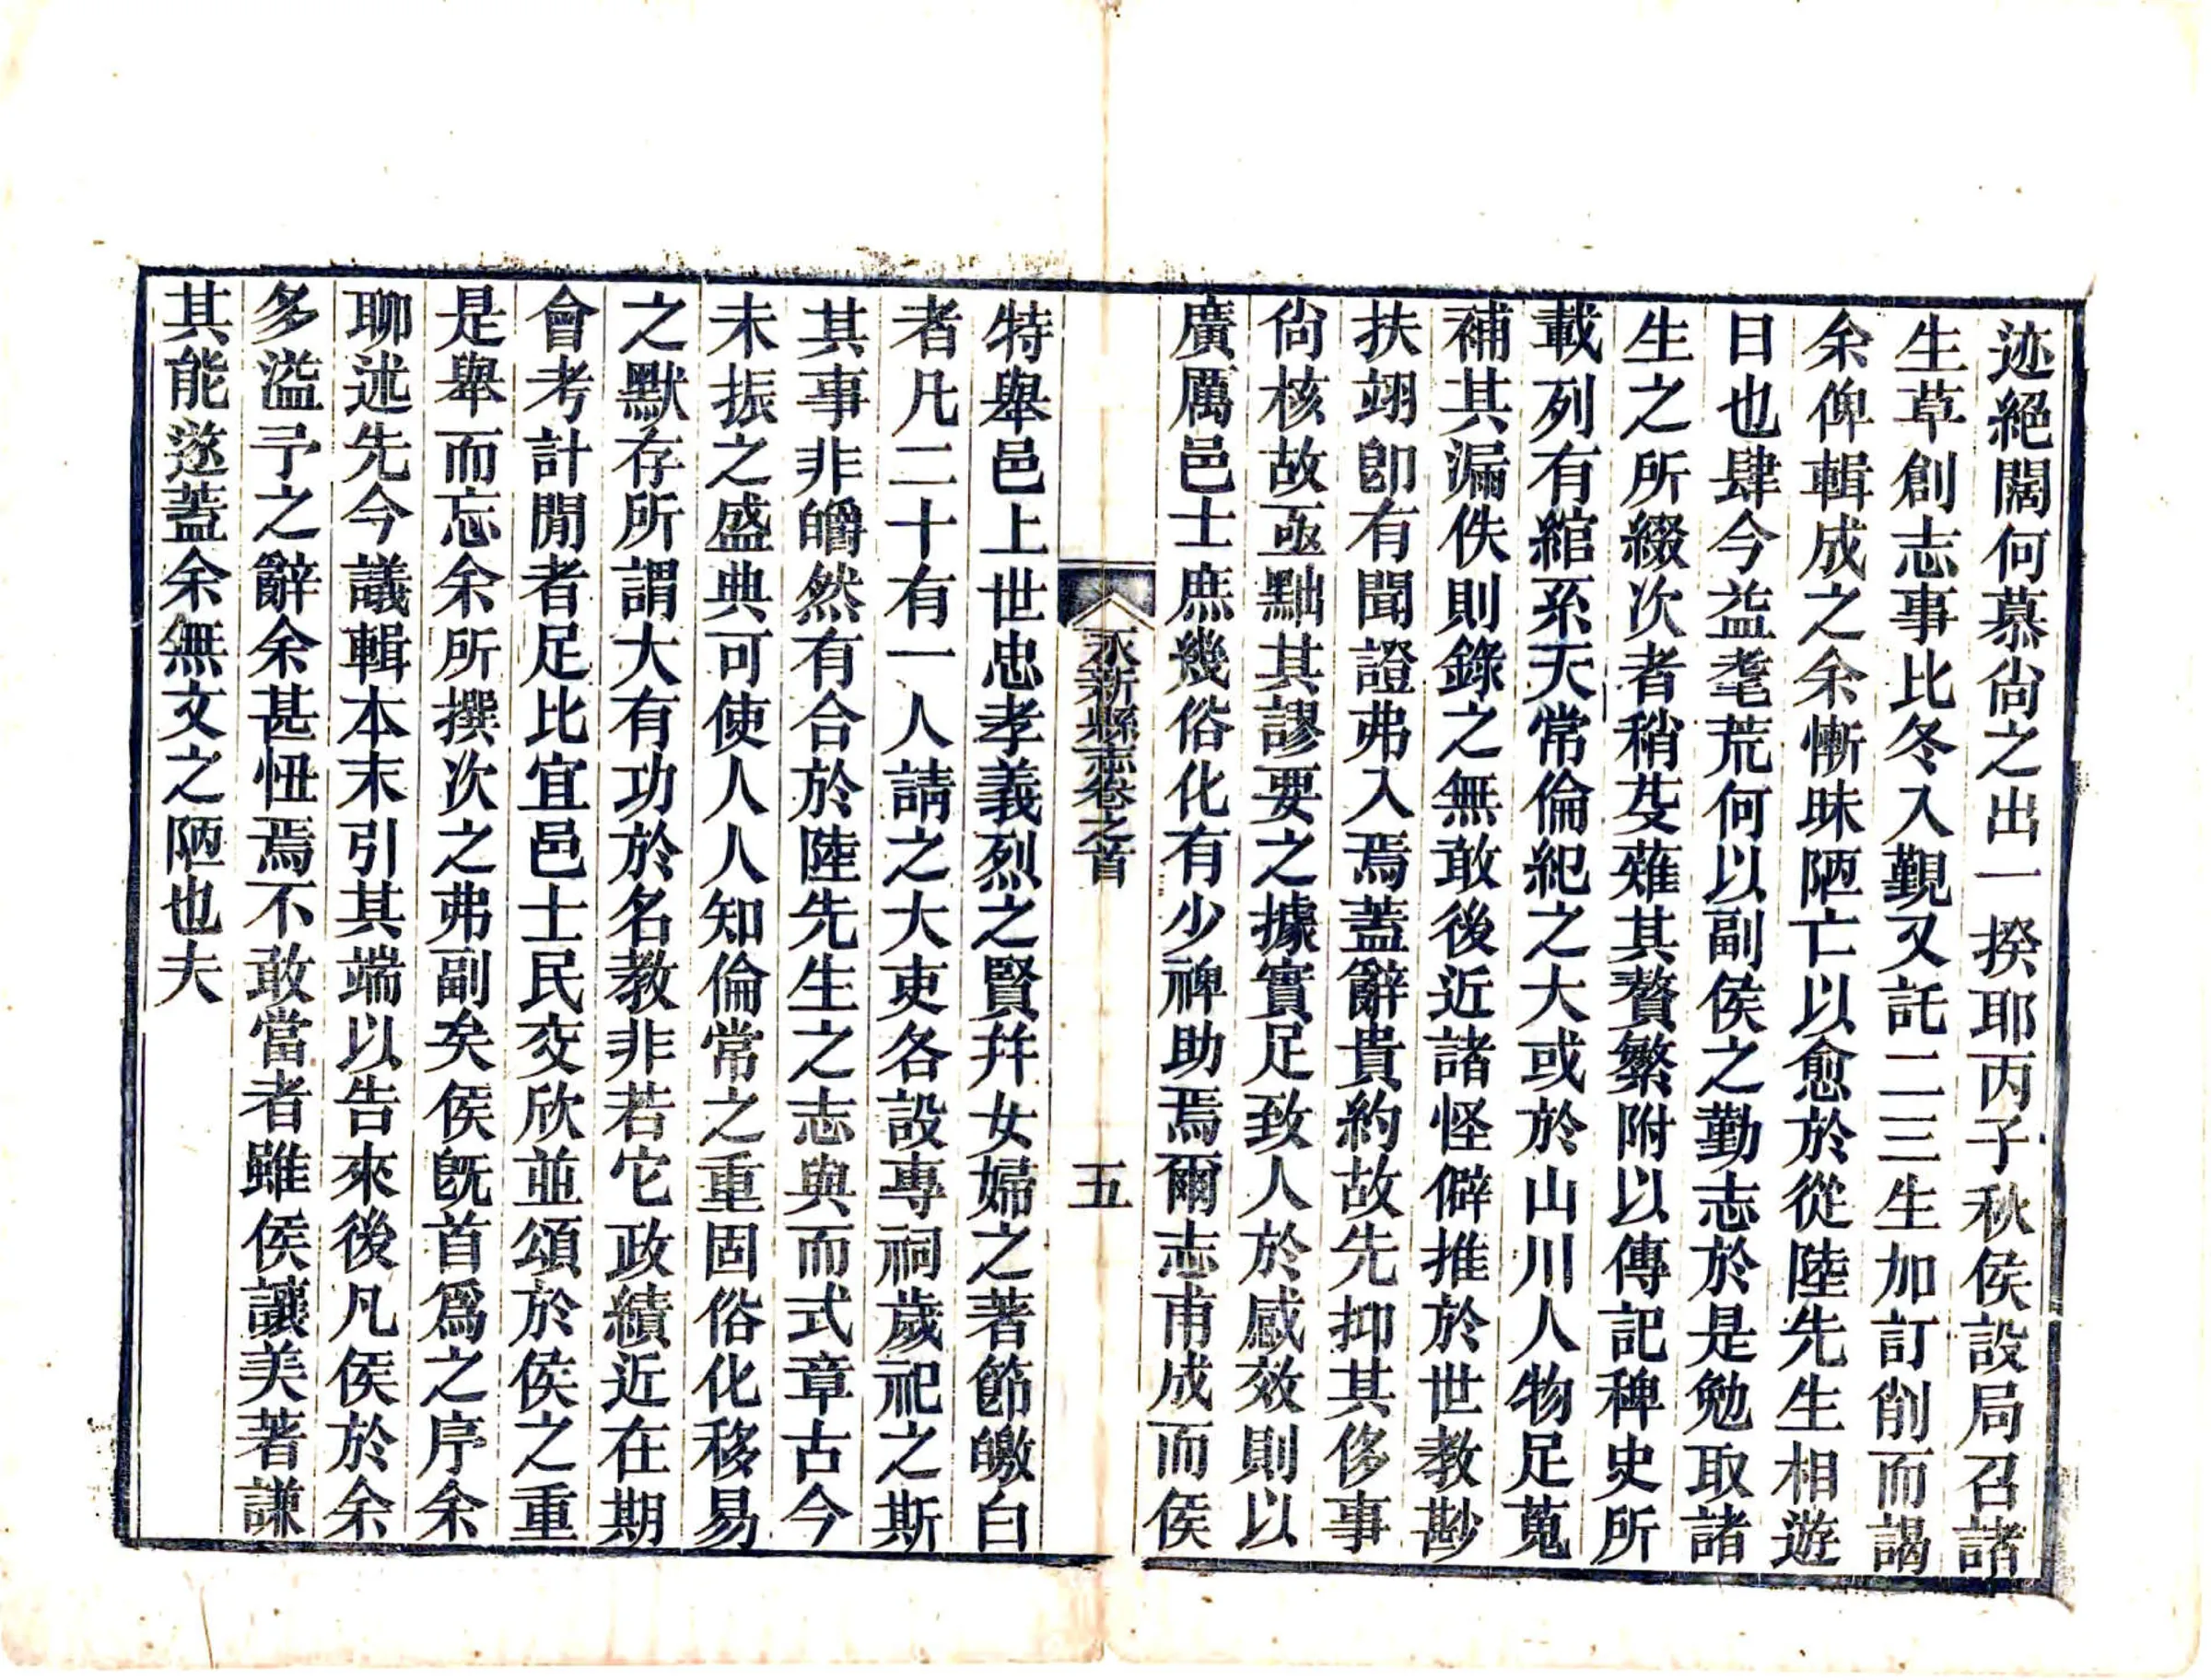 迹絕闊何慕尙之出一揆耶丙子秋侯設局召諸
生草創志事比冬入覲又託二三生加訂削而謁
余俾輯成之余慚昧陋亡以愈於從陸先生相遊
日也肆今益耄荒何以副侯之勤志於是勉取諸
生之所綴次者稍芟薙其贅繁附以傳記稗史所
載列有綰系天常倫紀之大或於山川人物足蒐
補其漏佚則錄之無敢後近諸怪僻推於世教尠
扶翊卽有聞證弗入焉蓋辭貴約故先抑其侈事
尙核故亟黜其謬要之據實足致人於感效則以
廣厲邑士庶幾俗化有少裨助焉爾志甫成而侯
永新縣志卷之首
五
特舉邑上世忠孝義烈之賢幷女婦之著節皦白
者凡二十有一人請之大吏各設專祠歲祀之斯
其事非皭然有合於陸先生之志與而式章古今
未振之盛典可使人人知倫常之重固俗化移易
之默存所謂大有功於名教非若它政績近在期
會考計閒者足比宜邑士民交欣並頌於侯之重
是舉而忘余所撰次之弗副矣侯旣首爲之序余
聊述先今議輯本末引其端以告來後凡侯於余
多溢予之辭余甚忸焉不敢當者雖侯讓美著謙
其能遂蓋余無文之陋也夫